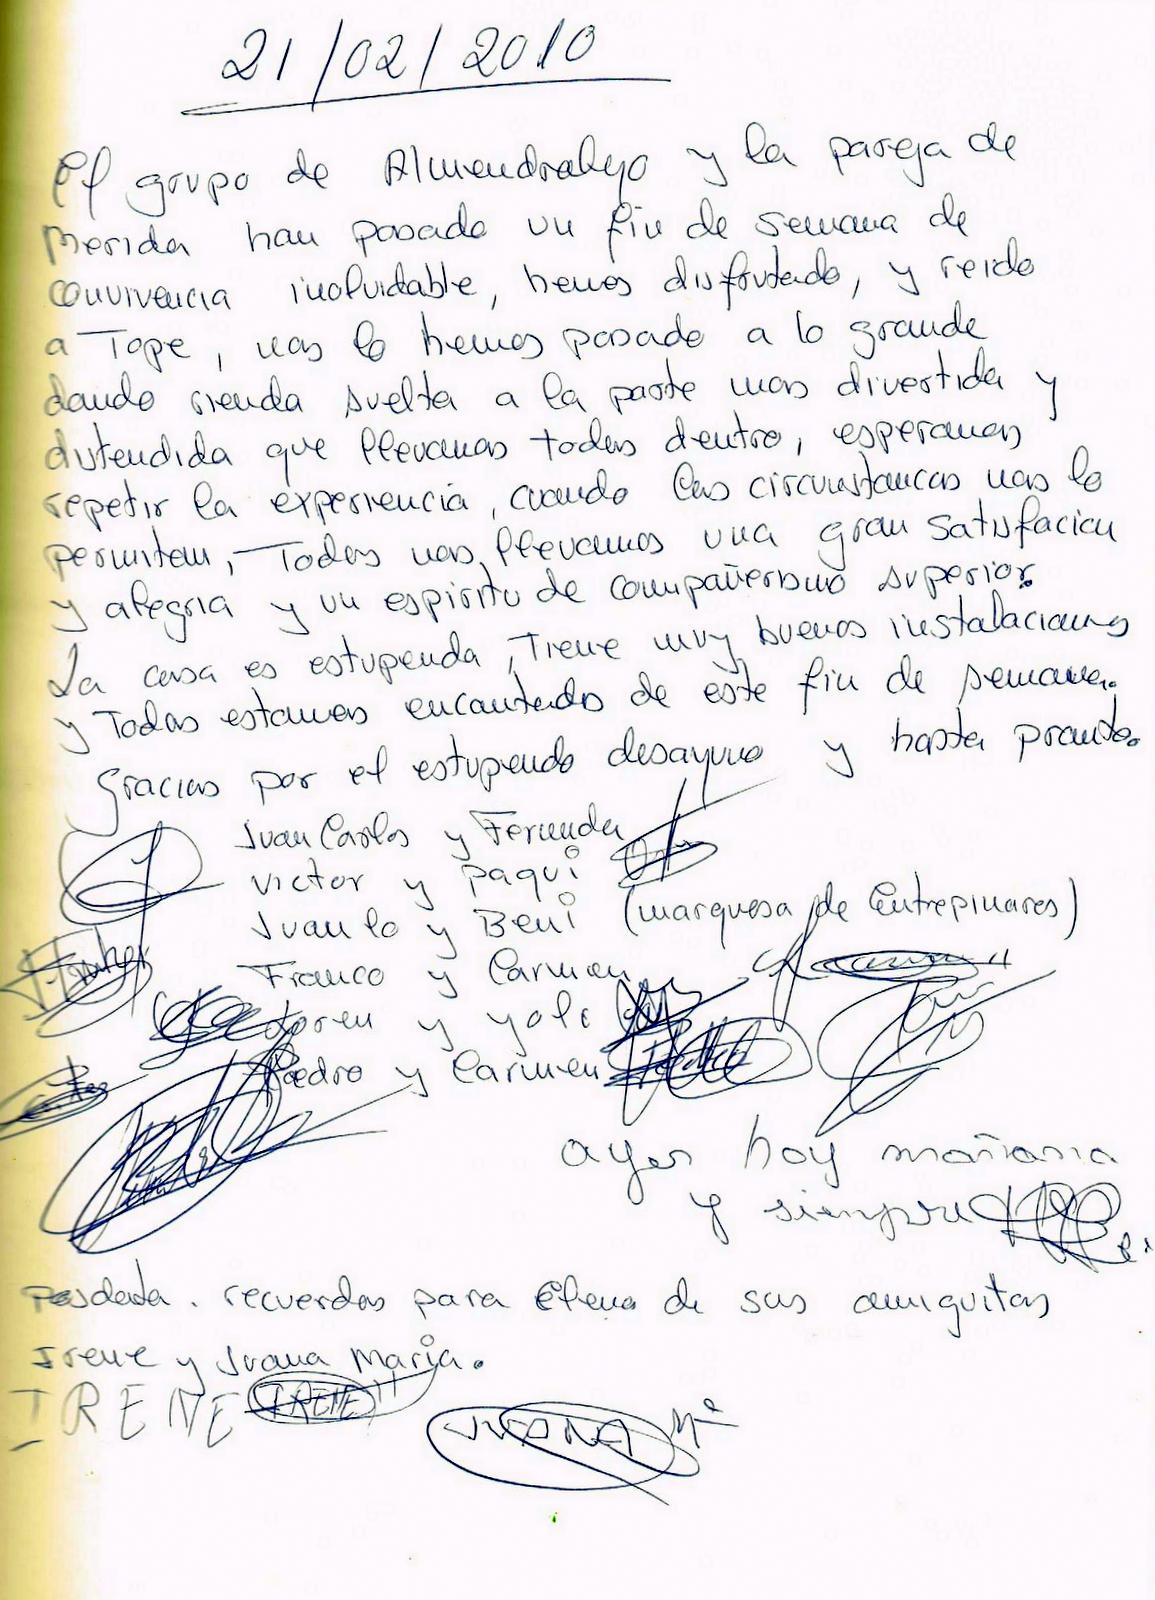 21/02/2010
El grupo de Almendralejo y la pareja de
Merida han pasado un fin de semana de
convivencia inolvidable, hemos disfrutado, y reido
a Tope, nos lo hemos pasado a lo grande
dando rienda suelta a la parte mas divertida y
distendida que llevamos todos dentro, esperamos
repetir la experiencia, cuando las circunstancias nos lo
permitan, Todos nos llevamos una gran satisfacion
y alegria y un espiritu de compañerismo superior.
La casa es estupenda, Tiene muy buenas instalaciones
y Todos estamos encantados de este fin de semana.
Gracias por el estupendo desayuno y hasta pronto.
Juan Carlos y Fernanda
Victor y Paqui
Juanlo y Beni (marquesa de Entrepinares)
Franco y Carmen
Loren y Yoli
Pedro y Carmen
ayer hoy mañana
y siempre
Posdata. recuerdos para Elena de sus amiguitas
Irene y Juana Maria.
IRENE IRENE
JUANA Mª